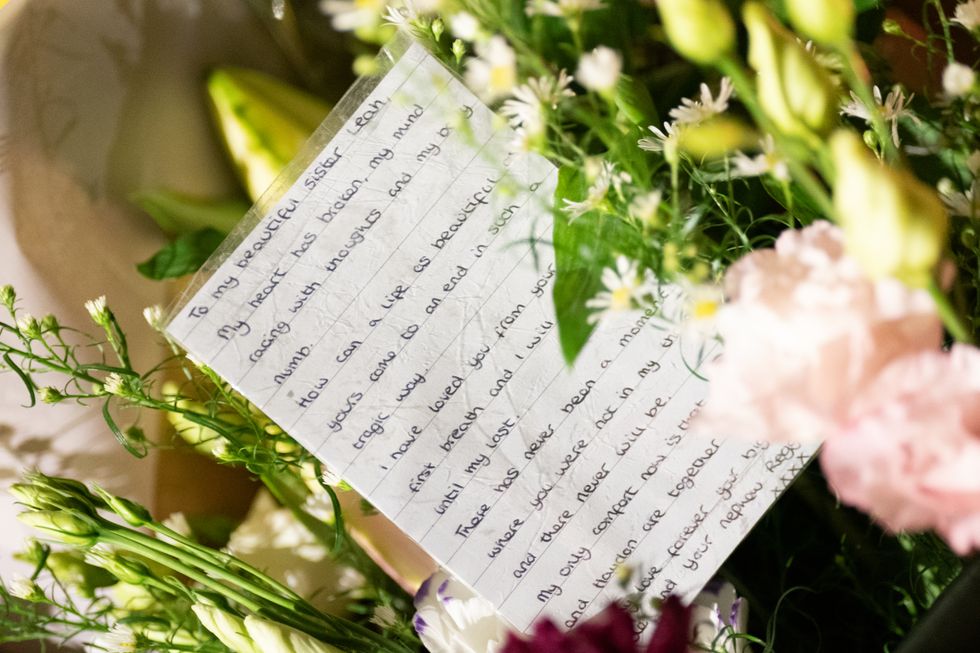 To my beautiful sister Leah
My heart has broken, my mind
racing with thoughts and my
numb.
How can a life as beautiful
yours come to an end in such a
tragic way.
I have loved you from your
first breath and I will
until my last.
There has never been a moment
where you were not in my
and there never will be.
My only comfort now is
and Haydon are together
Love forever your
and your nephew